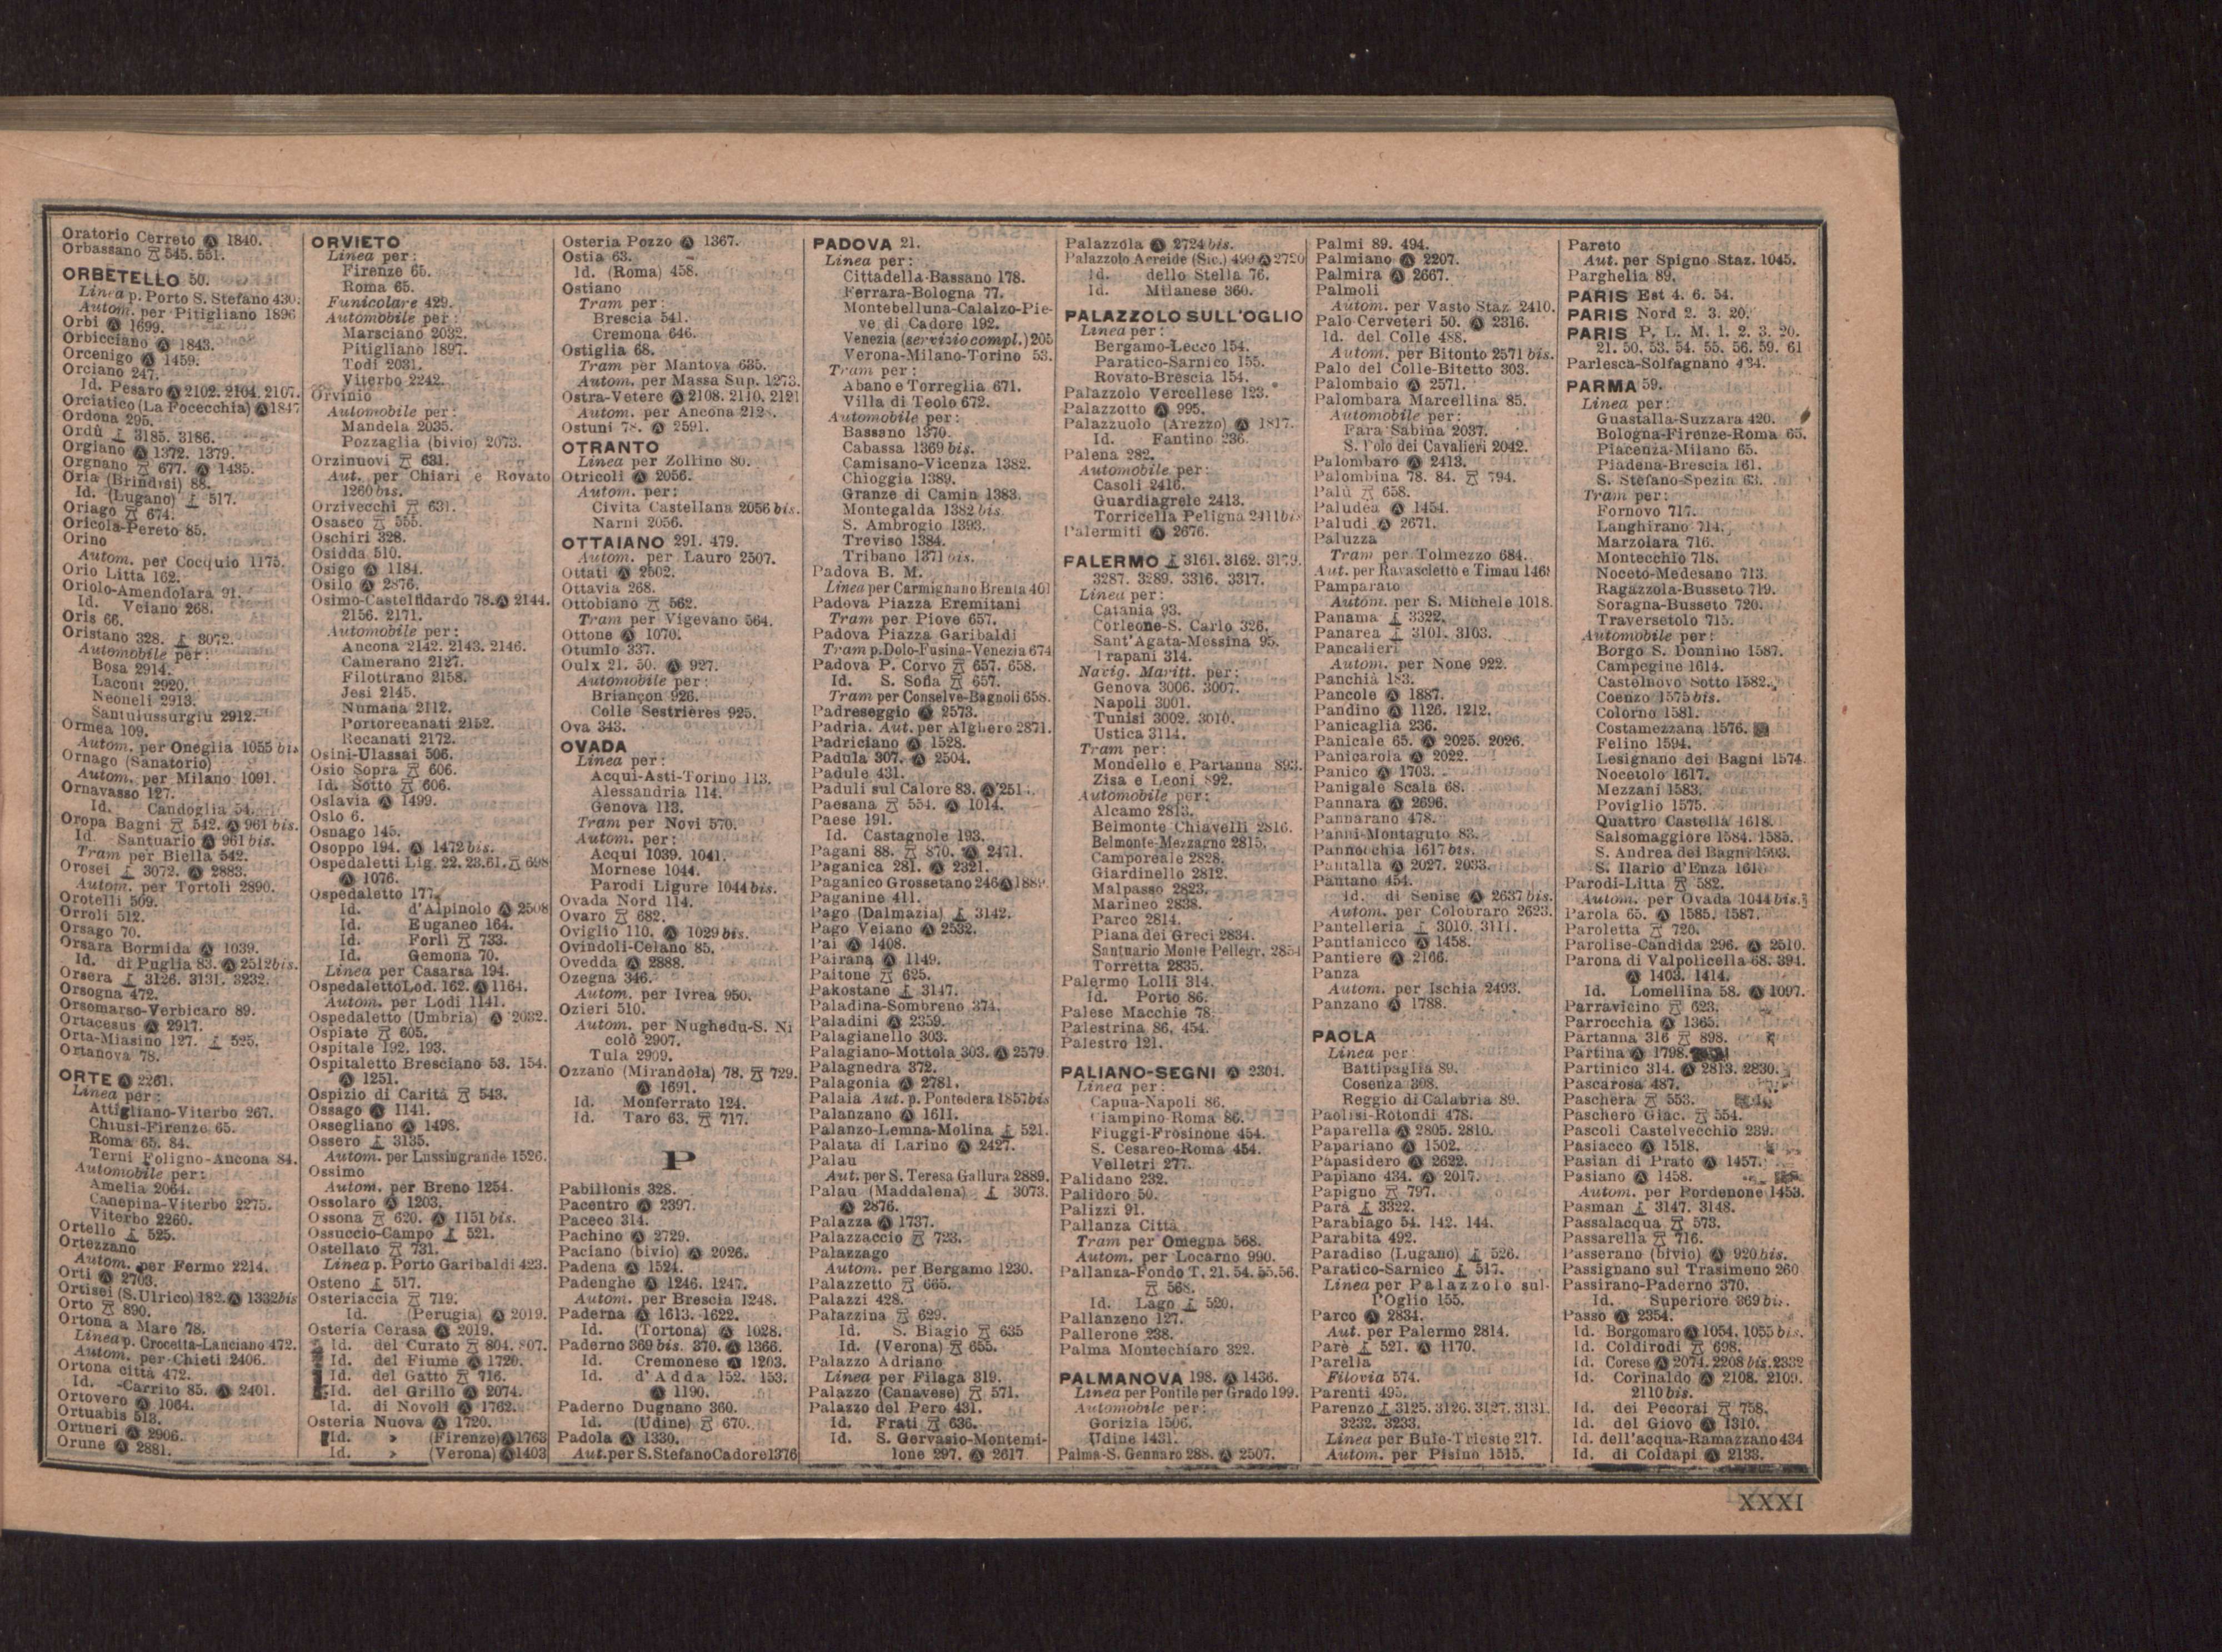 Oratorio Cerreto Ⓐ 1840.
Orbassano 545. 551.
ORBETELLO 50.
Linea p. Porto S. Stefano 430.
Autom. per Pitigliano 1896
Orbi Ⓐ 1699.
Orbicciano Ⓐ 1843.
Orcenigo Ⓐ 1459.
Orciano 247.
Id. Pesaro Ⓐ 2102. 2104. 2107.
Orciatico (La Focecchia) Ⓐ 1847
Ordona 295.
Ordù 3185. 3186.
Orgiano Ⓐ 1372. 1379.
Orgnano 677. Ⓐ 1435.
Oria (Brindisi) 88.
Id. (Lugano) 517.
Oriago 674.
Oricola-Pereto 85.
Orino
Autom. per Cocquio 1175.
Orio Litta 162.
Oriolo-Amendolara 91.
Id. Veiano 268.
Oris 66.
Oristano 328. 3072.
Automobile per:
Bosa 2914.
Laconi 2920.
Neoneli 2913.
Santulussurgiu 2912.
Ormea 109.
Autom. per Oneglia 1055 bis
Ornago (Sanatorio)
Autom. per Milano 1091.
Ornavasso 127.
Id. Candoglia 54.
Oropa Bagni 542. Ⓐ 961 bis.
Id. Santuario Ⓐ 961 bis.
Tram per Biella 542.
Orosei 3072. Ⓐ 2883.
Autom. per Tortoli 2890.
Orotelli 509.
Orroli 512.
Orsago 70.
Orsara Bormida Ⓐ 1039.
Id. di Puglia 83. Ⓐ 2512 bis.
Orsera 3126. 3131. 3232.
Orsogna 472.
Orsomarso-Verbicaro 89.
Ortacesus Ⓐ 2917.
Orta-Miasino 127. 525.
Ortanova 78.
ORTE Ⓐ 2261.
Linea per:
Attigliano-Viterbo 267.
Chiusi-Firenze 65.
Roma 65. 84.
Terni Foligno-Ancona 84.
Automobile per:
Amelia 2064.
Canepina-Viterbo 2275.
Viterbo 2260.
Ortello 525.
Ortezzano
Autom. per Fermo 2214.
Orti Ⓐ 2703.
Ortisei (S. Ulrico) 182. Ⓐ 1332 bis
Orto 890.
Ortona a Mare 78.
Linea p. Crocetta-Lanciano 472.
Autom. per Chieti 2406.
Ortona città 472.
Id. -Carrito 85. Ⓐ 2401.
Ortovero Ⓐ 1064.
Ortuabis 513.
Ortueri Ⓐ 2906.
Orune Ⓐ 2881.
ORVIETO
Linea per:
Firenze 65.
Roma 65.
Funicolare 429.
Automobile per:
Marsciano 2032.
Pitigliano 1897.
Todi 2031.
Viterbo 2242.
Orvinio
Automobile per:
Mandela 2035.
Pozzaglia (bivio) 2073.
Orzinuovi 631.
Aut. per Chiari e Rovato
1260 bis.
Orzivecchi 631.
Osasco 555.
Oschiri 328.
Osidda 510.
Osigo Ⓐ 1184.
Osilo Ⓐ 2876.
Osimo-Castelfidardo 78. Ⓐ 2144.
2156. 2171.
Automobile per:
Ancona 2142. 2143. 2146.
Camerano 2127.
Filottrano 2158.
Jesi 2145.
Numana 2112.
Portorecanati 2152.
Recanati 2172.
Osini-Ulassai 506.
Osio Sopra 606.
Id. Sotto 606.
Oslavia Ⓐ 1499.
Oslo 6.
Osnago 145.
Osoppo 194. Ⓐ 1472 bis.
Ospedaletti Lig. 22. 23. 61. 698
Ⓐ 1076.
Ospedaletto 177.
Id. d'Alpinolo Ⓐ 2508
Id. Euganeo 164.
Id. Forlì 733.
Id. Gemona 70.
Linea per Casarsa 194.
Ospedaletto Lod. 162. Ⓐ 1164.
Autom. per Lodi 1141.
Ospedaletto (Umbria) Ⓐ 2032.
Ospiate 605.
Ospitale 192. 193.
Ospitaletto Bresciano 53. 154.
Ⓐ 1251.
Ospizio di Carità 543.
Ossago Ⓐ 1141.
Ossegliano Ⓐ 1498.
Ossero 3135.
Autom. per Lussingrande 1526.
Ossimo
Autom. per Breno 1254.
Ossolaro Ⓐ 1203.
Ossona 620. Ⓐ 1151 bis.
Ossuccio-Campo 521.
Ostellato 731.
Linea p. Porto Garibaldi 423.
Osteno 517.
Osteriaccia 719.
Id. (Perugia) Ⓐ 2019.
Osteria Cerasa Ⓐ 2019.
Id. del Curato 804. 807.
Id. del Fiume Ⓐ 1720.
Id. del Gatto 716.
Id. del Grillo Ⓐ 2074.
Id. di Novoli Ⓐ 1762.
Osteria Nuova Ⓐ 1720.
Id. » (Firenze) Ⓐ 1763
Id. » (Verona) Ⓐ 1403
Osteria Pozzo Ⓐ 1367.
Ostia 63.
Id. (Roma) 458.
Ostiano
Tram per:
Brescia 541.
Cremona 646.
Ostiglia 68.
Tram per Mantova 635.
Autom. per Massa Sup. 1273.
Ostra-Vetere Ⓐ 2108. 2110. 2121
Autom. per Ancona
Ostuni 78. Ⓐ 2591.
OTRANTO
Linea per Zollino 80.
Otricoli Ⓐ 2056.
Autom. per:
Civita Castellana 2056 bis.
Narni 2056.
OTTAIANO 291. 479.
Autom. per Lauro 2507.
Ottati Ⓐ 2502.
Ottavia 268.
Ottobiano 562.
Tram per Vigevano 564.
Ottone Ⓐ 1070.
Otumlo 337.
Oulx 21. 50. Ⓐ 927.
Automobile per:
Briançon 926.
Colle Sestrières 925.
Ova 343.
OVADA
Linea per:
Acqui-Asti-Torino 113.
Alessandria 114.
Genova 113.
Tram per Novi 570.
Autom. per:
Acqui 1039. 1041.
Mornese 1044.
Parodi Ligure 1044 bis.
Ovada Nord 114.
Ovaro 682.
Oviglio 110. Ⓐ 1029 bis.
Ovindoli-Celano 85.
Ovedda Ⓐ 2888.
Ozegna 346.
Autom. per Ivrea 950.
Ozieri 510.
Autom. per Nughedu-S. Ni
colò 2907.
Tula 2909.
Ozzano (Mirandola) 78. 729.
Ⓐ 1691.
Id. Monferrato 124.
Id. Taro 63. 717.
P
Pabillonis 328.
Pacentro Ⓐ 2397.
Paceco 314.
Pachino Ⓐ 2729.
Paciano (bivio) Ⓐ 2026.
Padena Ⓐ 1524.
Padenghe Ⓐ 1246. 1247.
Autom. per Brescia 1248.
Paderna Ⓐ 1613. 1622.
Id. (Tortona) Ⓐ 1028.
Paderno 369 bis. 370. Ⓐ 1366.
Id. Cremonese Ⓐ 1203.
Id. d'Adda 152. 153.
Ⓐ 1190.
Paderno Dugnano 360.
Id. (Udine) 670.
Padola Ⓐ 1330.
Aut. per S. Stefano Cadore 1376
PADOVA 21.
Linea per:
Cittadella-Bassano 178.
Ferrara-Bologna 77.
Montebelluna-Calalzo-Pie-
ve di Cadore 192.
Venezia (servizio compl.) 205
Verona-Milano-Torino 53.
Tram per:
Abano e Torreglia 671.
Villa di Teolo 672.
Automobile per:
Bassano 1370.
Cabassa 1369 bis.
Camisano-Vicenza 1382.
Chioggia 1389.
Granze di Camin 1383.
Montegalda 1382 bis.
S. Ambrogio 1393.
Treviso 1384.
Tribano 1371 bis.
Padova B. M.
Linea per Carmignano Brenta 401
Padova Piazza Eremitani
Tram per Piove 657.
Padova Piazza Garibaldi
Tram p. Dolo-Fusina-Venezia 674
Padova P. Corvo 657. 658.
Id. S. Sofia 657.
Tram per Conselve-Bagnoli 658.
Padreseggio Ⓐ 2573.
Padria. Aut. per Alghero 2871.
Padriciano Ⓐ 1528.
Padula 307. Ⓐ 2504.
Padule 431.
Paduli sul Calore 83. Ⓐ
Paesana 554. Ⓐ 1014.
Paese 191.
Id. Castagnole 193.
Pagani 88. 870. Ⓐ 2471.
Paganica 281. Ⓐ 2321.
Paganico Grossetano 246 Ⓐ
Paganine 411.
Pago (Dalmazia) 3142.
Pago Veiano Ⓐ 2532.
Pai Ⓐ 1408.
Pairana Ⓐ 1149.
Paitone 625.
Pakostane 3147.
Paladina-Sombreno 374.
Paladini Ⓐ 2359.
Palagianello 303.
Palagiano-Mottola 303. Ⓐ 2579
Palagnedra 372.
Palagonia Ⓐ 2781.
Palaia Aut. p. Pontedera 1857 bis
Palanzano Ⓐ 1611.
Palanzo-Lemna-Molina 521.
Palata di Larino Ⓐ 2427.
Palau
Aut. per S. Teresa Gallura 2889.
Palau (Maddalena) 3073.
Ⓐ 2876.
Palazza Ⓐ 1737.
Palazzaccio 723.
Palazzago
Autom. per Bergamo 1230.
Palazzetto 665.
Palazzi 428.
Palazzina 629.
Id. S. Biagio 635
Id. (Verona) 655.
Palazzo Adriano
Linea per Filaga 319.
Palazzo (Canavese) 571.
Palazzo del Pero 431.
Id. Frati 636.
Id. S. Gervasio-Montemi-
lone 297. Ⓐ 2617
Palazzola Ⓐ 2724 bis.
Palazzolo Acreide (Sic.) 499 Ⓐ 2720
Id. dello Stella 76.
Id. Milanese 360.
PALAZZOLO SULL'OGLIO
Linea per:
Bergamo-Lecco 154.
Paratico-Sarnico 155.
Rovato-Brescia 154.
Palazzolo Vercellese 123.
Palazzotto Ⓐ 995.
Palazzuolo (Arezzo) Ⓐ 1817.
Id. Fantino 236.
Palena 282.
Automobile per:
Casoli 2416.
Guardiagrele 2413.
Torricella Peligna 2411 bis
Palermiti Ⓐ 2676.
PALERMO 3161. 3162. 3179.
3287. 3289. 3316. 3317.
Linea per:
Catania 93.
Corleone-S. Carlo 326.
Sant'Agata-Messina 95.
Trapani 314.
Navig. Maritt. per:
Genova 3006. 3007.
Napoli 3001.
Tunisi 3002. 3010.
Ustica 3114.
Tram per:
Mondello e Partanna 893.
Zisa e Leoni 892.
Automobile per:
Alcamo 2813.
Belmonte Chiavelli 2816.
Belmonte Mezzagno 2815.
Camporeale 2828.
Giardinello 2812.
Malpasso 2823.
Marineo 2838.
Parco 2814.
Piana dei Greci 2834.
Santuario Monte Pellegr. 2854
Torretta 2835.
Palermo Lolli 314.
Id. Porto 86.
Palese Macchie 78.
Palestrina 86. 454.
Palestro 121.
PALIANO-SEGNI Ⓐ 2301.
Linea per:
Capua-Napoli 86.
Ciampino-Roma 86.
Fiuggi-Frosinone 454.
S. Cesareo-Roma 454.
Velletri 277.
Palidano 232.
Palidoro 50.
Palizzi 91.
Pallanza Città
Tram per Omegna 568.
Autom. per Locarno 990.
Pallanza-Fondo T. 21. 54. 55. 56.
568.
Id. Lago 520.
Pallanzeno 127.
Pallerone 238.
Palma Montechiaro 322.
PALMANOVA 198. Ⓐ 1436.
Linea per Pontile per Grado 199.
Automobile per:
Gorizia 1506.
Udine 1431.
Palma-S. Gennaro 288. Ⓐ 2507.
Palmi 89. 494.
Palmiano Ⓐ 2207.
Palmira Ⓐ 2667.
Palmoli
Autom. per Vasto Staz. 2410.
Palo Cerveteri 50. Ⓐ 2316.
Id. del Colle 488.
Autom. per Bitonto 2571 bis.
Palo del Colle-Bitetto 303.
Palombaio Ⓐ 2571.
Palombara Marcellina 85.
Automobile per:
Fara Sabina 2037.
S. Polo dei Cavalieri 2042.
Palombaro Ⓐ 2413.
Palombina 78. 84. 794.
Palù 658.
Paludea Ⓐ 1454.
Paludi Ⓐ 2671.
Paluzza
Tram per Tolmezzo 684.
Aut. per Ravascletto e Timau 1468
Pamparato
Autom. per S. Michele 1018.
Panama 3322.
Panarea 3101. 3103.
Pancalieri
Autom. per None 922.
Panchià 183.
Pancole Ⓐ 1887.
Pandino Ⓐ 1126. 1212.
Panicaglia 236.
Panicale 65. Ⓐ 2025. 2026.
Panicarola Ⓐ 2022.
Panico Ⓐ 1703.
Panigale Scala 68.
Pannara Ⓐ 2696.
Pannarano 478.
Panni-Montaguto 83.
Pannocchia 1617 bis.
Pantalla Ⓐ 2027. 2033.
Pantano 454.
id. di Senise Ⓐ 2637 bis.
Autom. per Colobraro 2623.
Pantelleria 3010. 3111.
Pantianicco Ⓐ 1458.
Pantiere Ⓐ 2166.
Panza
Autom. per Ischia 2493.
Panzano Ⓐ 1788.
PAOLA
Linea per:
Battipaglia 89.
Cosenza 308.
Reggio di Calabria 89.
Paolisi-Rotondi 478.
Paparella Ⓐ 2805. 2810.
Papariano Ⓐ 1502.
Papasidero Ⓐ 2622.
Papiano 434. Ⓐ 2017.
Papigno 797.
Parà 3322.
Parabiago 54. 142. 144.
Parabita 492.
Paradiso (Lugano) 526.
Paratico-Sarnico 517.
Linea per Palazzolo sul-
l'Oglio 155.
Parco Ⓐ 2834.
Aut. per Palermo 2814.
Parè 521. Ⓐ 1170.
Parella
Filovia 574.
Parenti 495.
Parenzo 3125. 3126. 3127. 3131.
3232. 3233.
Linea per Buie-Trieste 217.
Autom. per Pisino 1515.
Pareto
Aut. per Spigno Staz. 1045.
Parghelia 89.
PARIS Est 4. 6. 54.
PARIS Nord 2. 3. 20.
PARIS P. L. M. 1. 2. 3. 20.
21. 50. 53. 54. 55. 56. 59. 61
Parlesca-Solfagnano 434.
PARMA 59.
Linea per:
Guastalla-Suzzara 420.
Bologna-Firenze-Roma 65.
Piacenza-Milano 65.
Piadena-Brescia 161.
S. Stefano-Spezia 63.
Tram per:
Fornovo 717.
Langhirano 714.
Marzolara 716.
Montecchio 718.
Noceto-Medesano 713.
Ragazzola-Busseto 719.
Soragna-Busseto 720.
Traversetolo 715.
Automobile per:
Borgo S. Donnino 1587.
Campegine 1614.
Castelnovo Sotto 1582.
Coenzo 1575 bis.
Colorno 1581.
Costamezzana 1576.
Felino 1594.
Lesignano dei Bagni 1574.
Nocetolo 1617.
Mezzani 1583.
Poviglio 1575.
Quattro Castella 1618.
Salsomaggiore 1584. 1585.
S. Andrea dei Bagni 1593.
S. Ilario d'Enza 1616
Parodi-Litta 582.
Autom. per Ovada 1044 bis.
Parola 65. Ⓐ 1585. 1587.
Paroletta 720.
Parolise-Candida 296. Ⓐ 2510.
Parona di Valpolicella 68. 394.
Ⓐ 1403. 1414.
Id. Lomellina 58. Ⓐ 1097.
Parravicino 623.
Parrocchia Ⓐ 1365.
Partanna 316 898.
Partina Ⓐ 1798.
Partinico 314. Ⓐ 2813. 2830.
Pascarosa 487.
Paschera 553.
Paschero Giac. 554.
Pascoli Castelvecchio 239.
Pasiacco Ⓐ 1518.
Pasian di Prato Ⓐ 1457.
Pasiano Ⓐ 1458.
Autom. per Pordenone 1453.
Pasman 3147. 3148.
Passalacqua 573.
Passarella 716.
Passerano (bivio) Ⓐ 920 bis.
Passignano sul Trasimeno 260
Passirano-Paderno 370.
Id. Superiore 369 bis.
Passo Ⓐ 2354.
Id. Borgomaro Ⓐ 1054. 1055 bis.
Id. Coldirodi 698.
Id. Corese Ⓐ 2074. 2208 bis. 2332
Id. Corinaldo Ⓐ 2108. 2109.
2110 bis.
Id. dei Pecorai 758.
Id. del Giovo Ⓐ 1310.
Id. dell'acqua-Ramazzano 434
Id. di Coldapi Ⓐ 2133.
XXXI